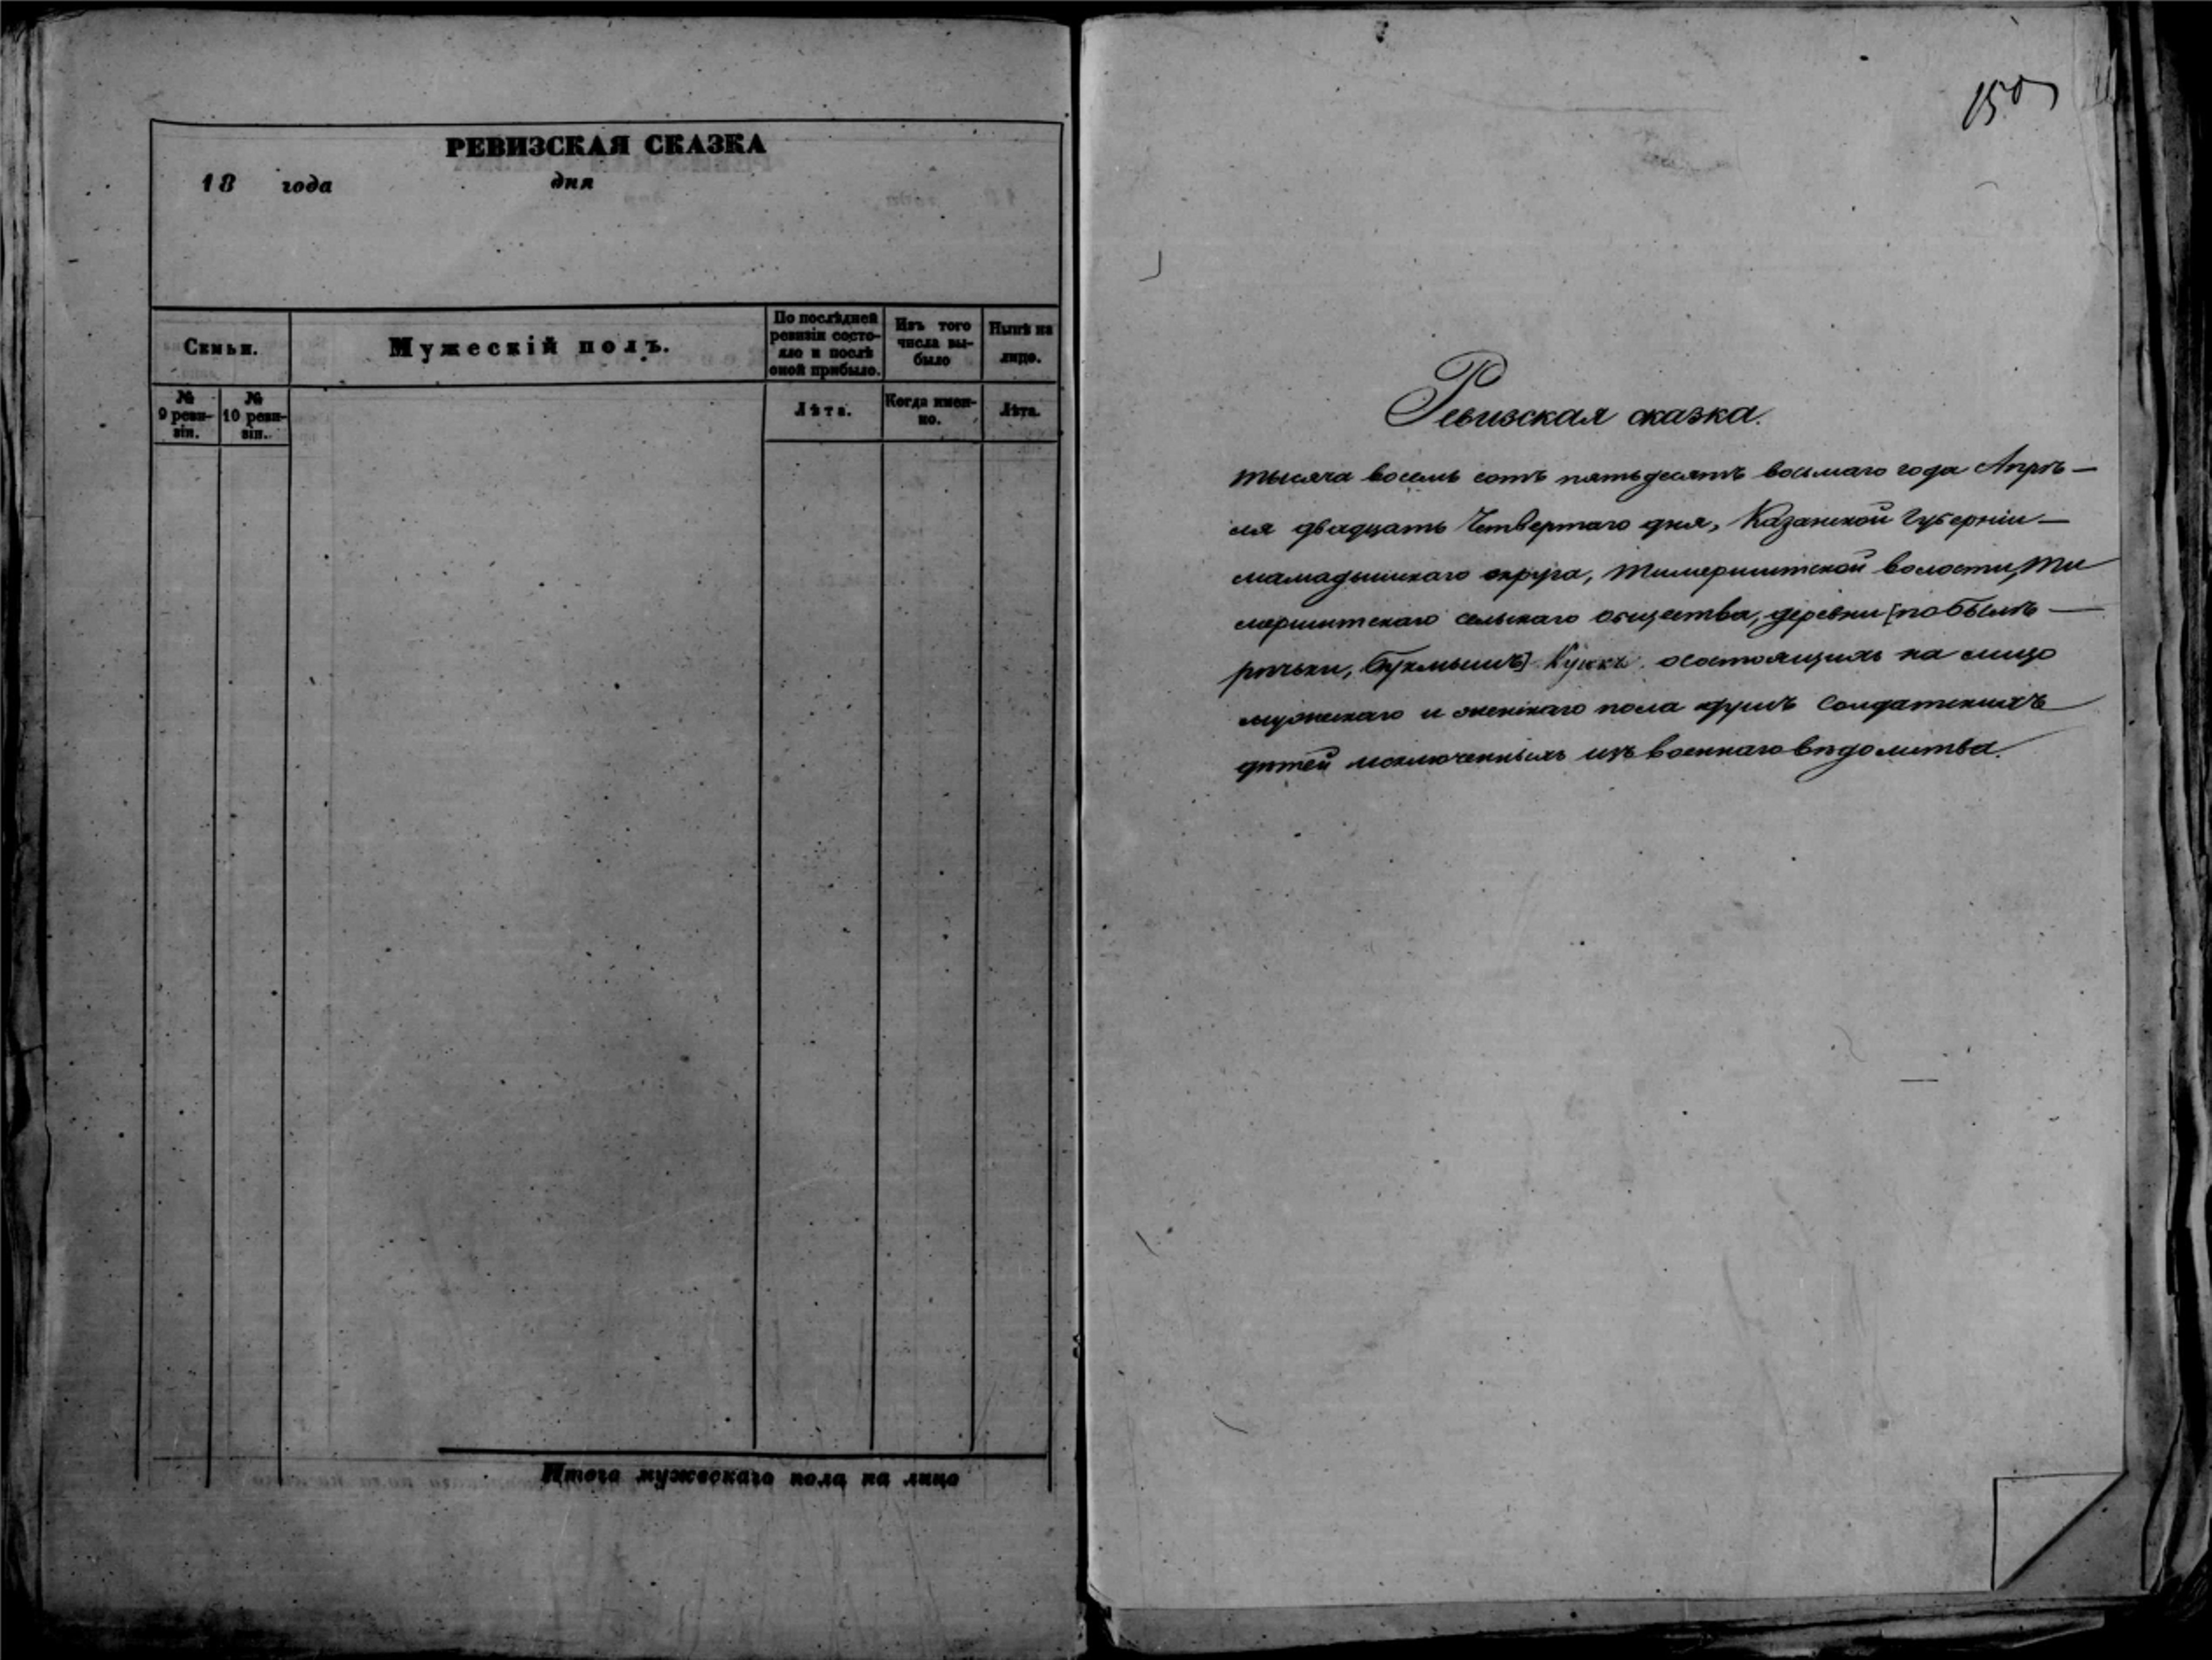 РЕВИЗСКАЯ СКАЗКА
18 года дня
Семьи.
Мужескій полъ.
По послѣдней ревизіи состо-
яло и послѣ
оной прибыло.
Изъ того
числа вы-
было
Нынѣ на
лицо.
№
9 реви-
зіи.
№
10 реви-
зіи.
Лѣта.
Когда имен-
но.
Лѣта.
Итого мужескаго пола на лицо
150
Ревизская сказка.
тысяча восемь сотъ пятьдесятъ восьмаго года Апрѣ—
ля двадцать Четвертаго дня, Казанской Губерніи—
мамадышскаго округа, тимершитской волости, ти
мершитскаго сельскаго общества, деревни [по
рѣчьки, Кукъ состоящихъ на лицо
мужескаго и женскаго пола душъ Солдатскихъ
дѣтей исключенныхъ изъ военнаго вѣдомства.